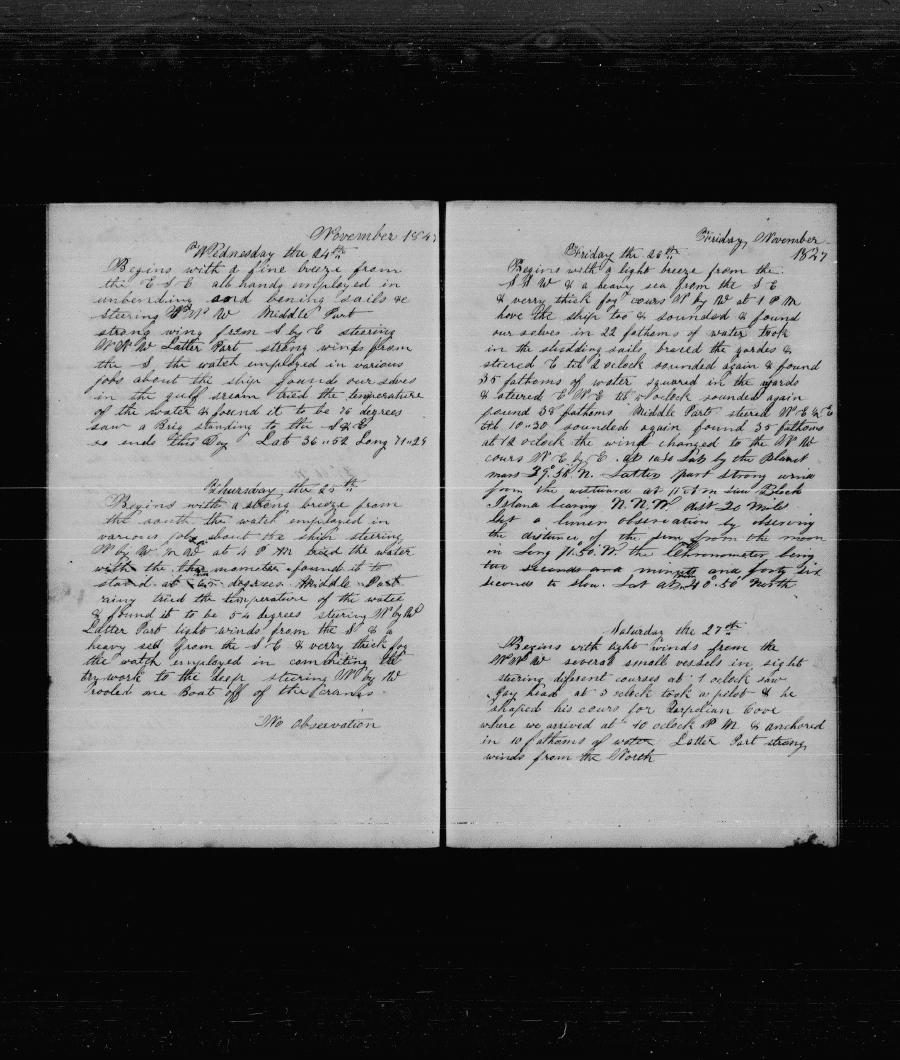 November 1847
Wednesday the 24th
Begins with a fine breeze from
the E S E all hands employed in
unbending and bening sails &
steering W N W Middle Part
strong wing from S by E steering
W N W Latter Part strong winds from
the S the watch employed in various
jobs about the ship found our selves
in the gulf sream tried the temperature
of the water & found it to be 76 degrees
saw a Brig standing to the S & E
so ends this Day Lat 36"52 Long 71"24
Thursday the 25th
Begins with a strong breeze from
the south the watch employed in
various jobs about the ship steering
N by W N W at 4 P M tried the water
with the thermometer found it to
stand at 65 degrees Middle Part
rainy tried the temperature of the water
& found it to be 54 degrees steering N by W
Latter Part light winds from the S & a
heavy sea from the S E & verry thick fog
the watch employed in commiting the
try work to the deep steering N by W
rooled one Boat off of the cranes
No observation
Friday, November
1847
Friday the 26th
Begins with a light breeze from the
S S W & a heavy sea from the S E
& verry thick fog cours N by W at 1 P M
hove the ship too & sounded & found
our selves in 22 fathoms of water took
in the studding sails braced the yardes &
steered E til 2 oclock sounded again & found
35 fathoms of water squared in the yards
& steered E N E til oclock sounded again
found 38 fathoms Middle Part steered N E & E
till 10"30 sounded again found 35 fathoms
at 12 oclock the wind changed to the N W
cours N E by E at Lat by the Planet
mars 39°.58' N. Latter part strong wind
from the westward at 11 A m saw Block
Island bearing N.N.W. dist 20 Miles
Got a lunar observation by observing
the distance of the sun from the moon
in Long 71°.50'. W the Chronometer being
two seconds and a minute and forty six
seconds to slow. Lat at 40°.50' North
Saturday the 27th
Begins with light winds from the
W N W several small vessels in sight
stering diferent courses at 1 oclock saw
Gay head at 3 oclock took a pelot & he
shaped his cours for Tarpelian Cove
where we arrived at 10 oclock P M & anchored
in 10 fathoms of water Latter Part strong
winds from the North